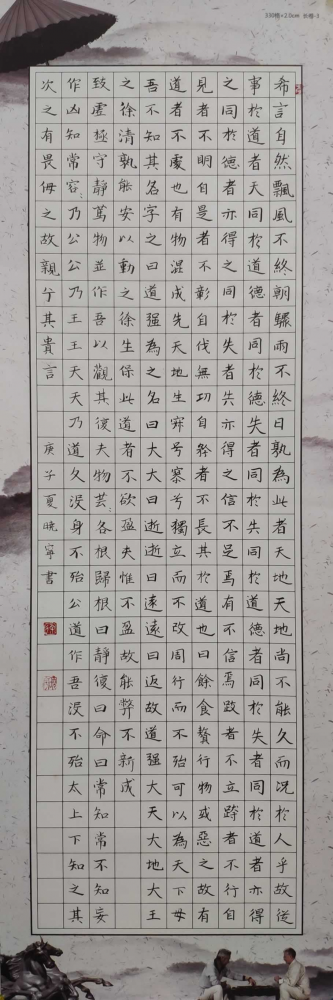 330格×2.0cm 长格-3
希言自然飄風不終朝驟雨不終日孰為此者天地天地尚不能久而況於人乎故從
事於道者天同於道德者同於德失者同於失同於道德者同於失者同於道者亦得
之同於德者亦得之同於失者共亦得之信不足焉有不信焉跂者不立跨者不行自
見者不明自是者不彰自伐無功自矜者不長其於道也曰餘食贅行物或惡之故有
道者不處也有物混成先天地生寂兮寥兮獨立而不改周行而不殆可以為天下母
吾不知其名字之曰道强為之名曰大大曰逝逝曰遠遠曰返故道强大天大地大王
之徐清孰能安以動之徐生保此道者不欲盈夫惟不盈故能弊不新成
致虛極守靜篤物並作吾以觀其復夫物芸各根歸根曰靜復曰命曰常知常不知妄
作凶知常容乃公公乃王王天天乃道久沒身不殆公道作吾沒不殆太上下知之其
次之有畏侮之故親兮其貴言 庚子夏曉寧書